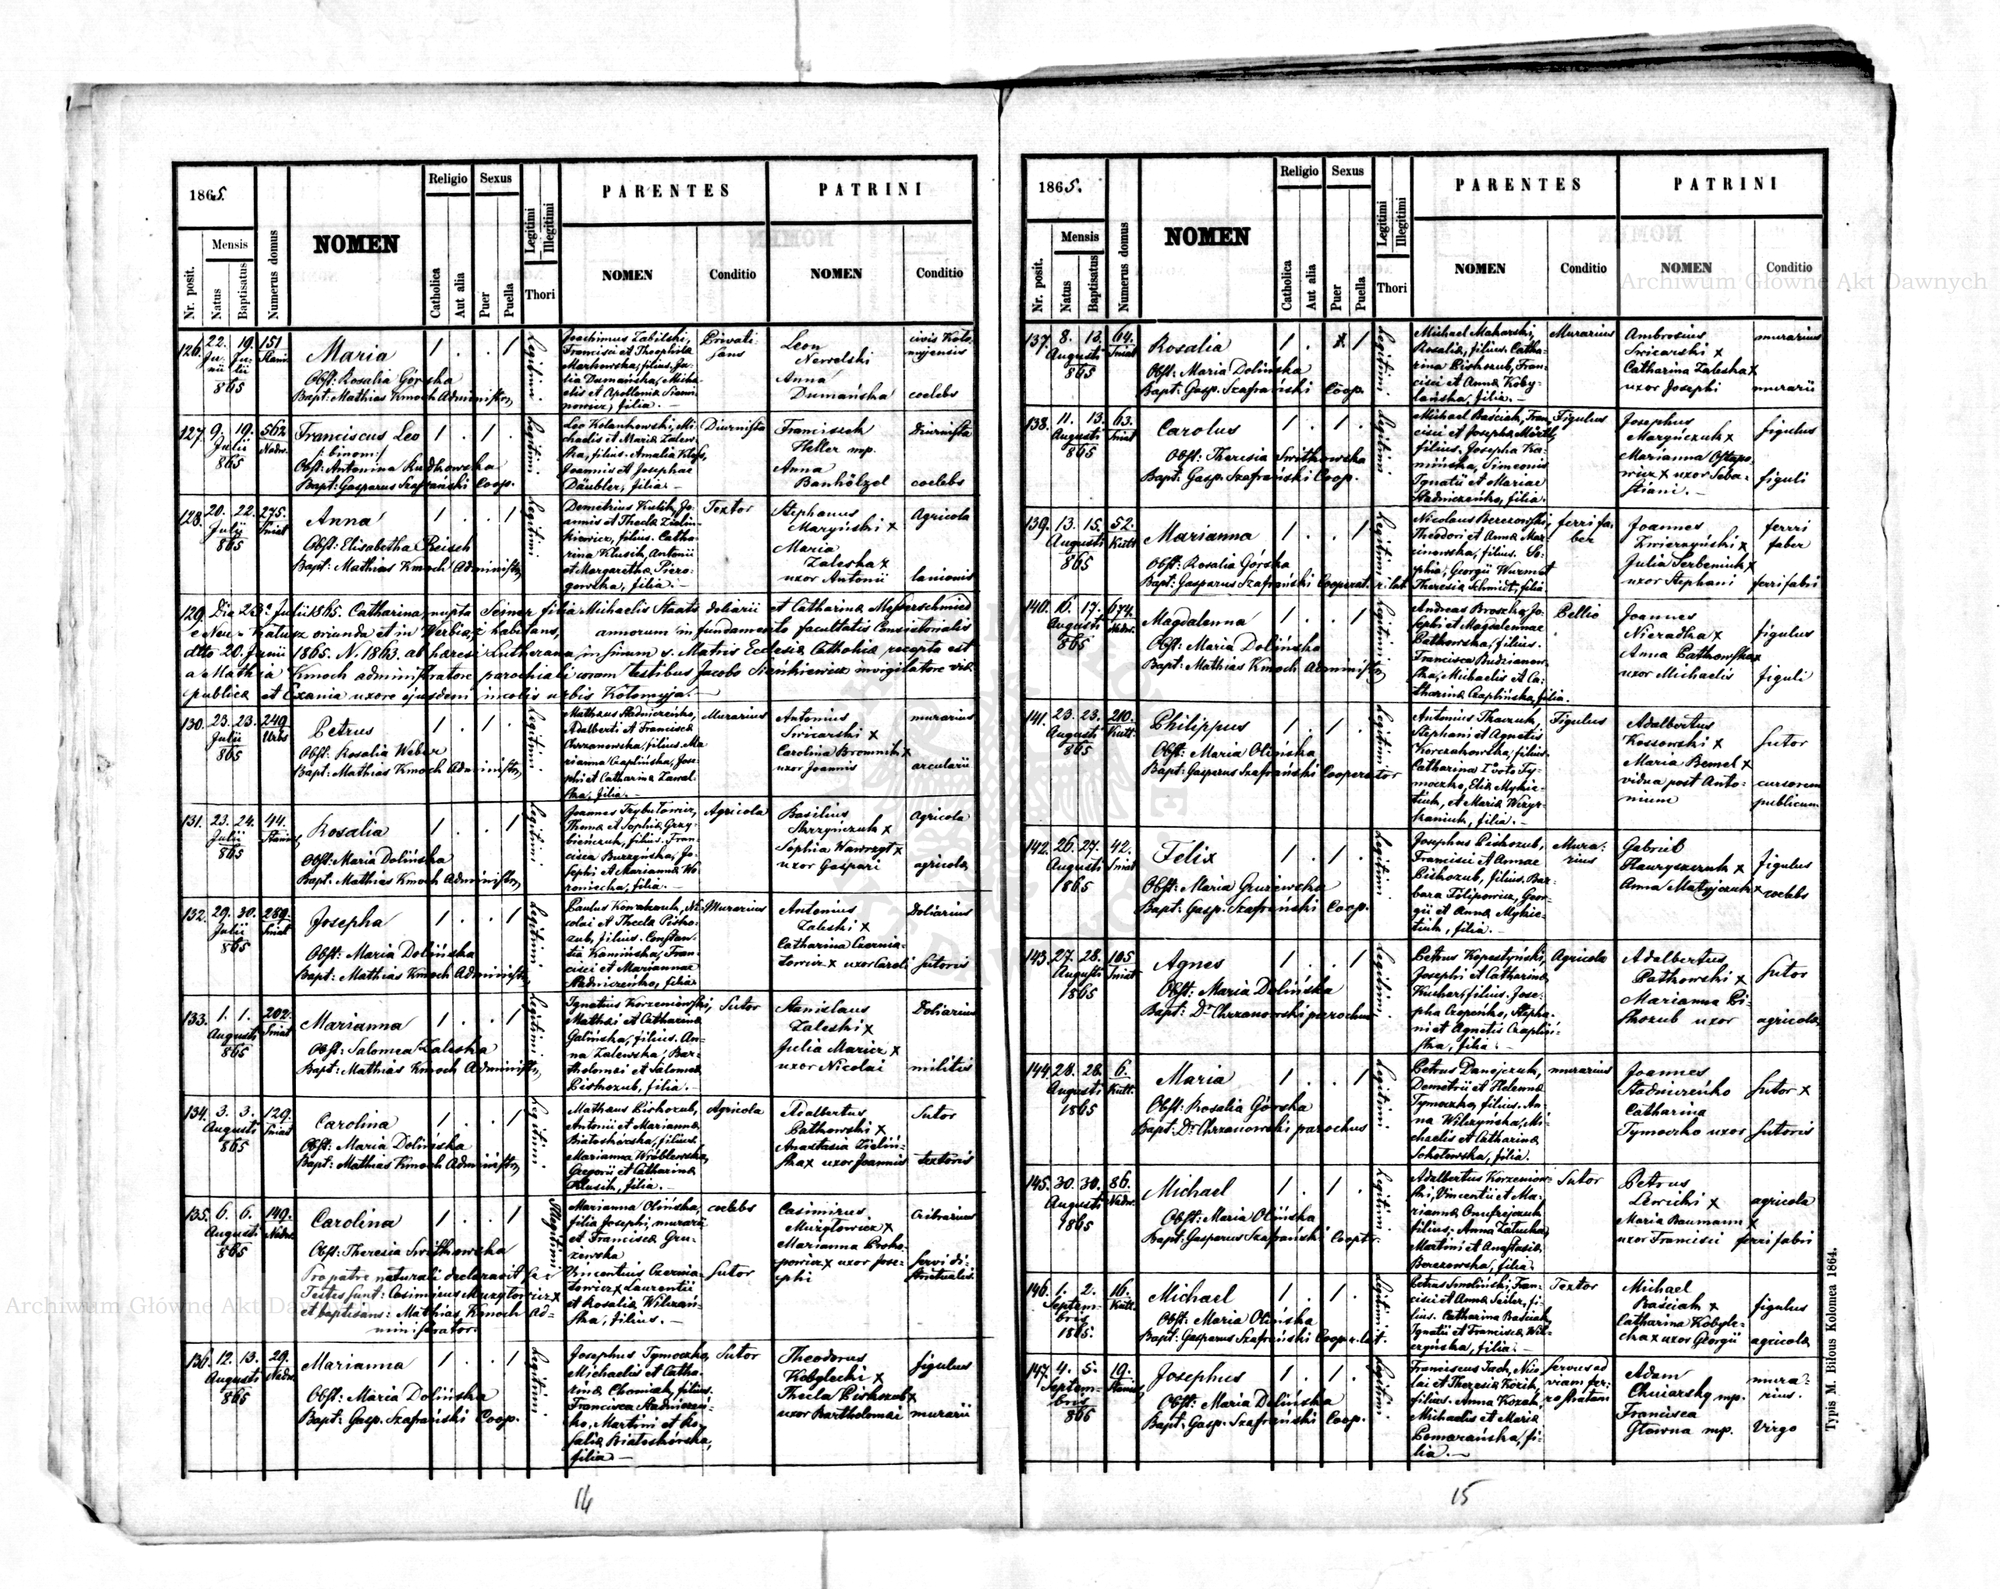 1865.
Nr. posit.
Mensis
Natus
Baptisatus
Numerus domus
NOMEN
Religio
Catholica
Aut alia
Sexus
Puer
Puella
Legitimi
Illegitimi
Thori
PARENTES
NOMEN
Conditio
PATRINI
NOMEN
Conditio
126. 22. 19. 151
Junii Julii
865
Maria
Obst: Rosalia Gorska
Bapt: Mathias Kmoch Administr.
1 . . 1
Legitimi
Joachimus Zabilski,
Francisci et Theophila
Markowska, filius. Ju-
lia Dumańska, Micha-
elis et Apollonia
filia.
Privati-
sans
Leon
Newelski
Anna
Dumańska
civis Kolo-
myjensis
coelebs
127. 9. 19. 562
Julii
865
Franciscus Leo
/: binom :/
Obst: Antonina Rudkowska
Bapt: Gasparus Szafrański Coop.
1 . 1 .
Legitimi
Leo Kolankowski, Mi-
chaelis et Maria Zalew-
ska, filius. Amalia
Joannis et Josepha
Däubler, filia.
Diurnista
Francisek
Heller mp.
Anna
Banhölzel
Diurnista
coelebs
128. 20. 22. 275.
Julii Sniat
865
Anna
Obst: Elisabetha Reisch
Bapt: Mathias Kmoch Administr.
1 . . 1
Legitimi
Demetrius Kulik, Jo-
annis et Thecla Zielin-
kiewicz, filius. Catha-
rina Klusik, Antonii
et Margaretha Piero-
gowska, filia.
Textor
Stephanus
Maryński x
Maria
Zaleska x
uxor Antonii
Agricola
lanionis
129. Dia 23. Julii 1865. Catharina nupta Seiner filia Michaelis Staats doliarii et Catharina Messerschmied
e Neu-Kalusz oriunda et in Werbiąż habitans, annorum in fundamento facultatis Consistorialis
dtto 20. Junii 1865. N. 1863. ab haeresi Lutherana in sinum s. Matris Ecclesia Catholica recepta est
a Mathia Kmoch administratore parochiali coram testibus Jacobo Sienkiewicz invigilatore via
publica et Oxania uxore ejusdem incolis urbis Kolomyja.
130. 23. 23. 249
Julii Urbs
865
Petrus
Obst. Rosalia Weber
Bapt: Mathias Kmoch Administr.
1 . 1 .
Legitimi
Mathaus Stadniczeńko,
Adalberti et Francisca
Chrzanowska, filius. Ma-
rianna Czaplińska, Jose-
phi et Catharina Zawal-
ska, filia.
Murarius
Antonius
Swicarski x
Carolina Bromnik x
uxor Joannis
murarius
arcularii
131. 23. 24. 44.
Julii
865
Rosalia
Obst: Maria Dolińska
Bapt: Mathias Kmoch Administr.
1 . . 1
Legitimi
Joannes Trybułowicz,
Thoma et Sophia Grzy-
bieńczuk, filius. Fran-
cisca Burzyńska, Jo-
sephi et Marianna Wo-
roniecka, filia.
Agricola
Basilius
Skrzyńczuk x
Sophia Wawrzyt x
uxor Gaspari
Agricola
agricola
132. 29. 30. 289.
Julii Sniat
865
Josepha
Obst: Maria Dolińska
Bapt: Mathias Kmoch Administr.
1 . . 1
Legitimi
Paulus Kowalczuk, Ni-
colai et Thecla Pisko-
zub, filius. Constan-
tia Kamińska, Fran-
cisci et Mariannae
Stadniczeńko, filia
Murarius
Antonius
Zaleski x
Catharina Czernia-
towicz x uxor Caroli
Doliarius
sutoris
133. 1. 1. 202.
Augusti Sniat
865
Marianna
Obst: Salomea Zaleska
Bapt: Mathias Kmoch Administr.
1 . . 1
Legitimi
Ignatius Korzeniowski,
Mathai et Catharina
Galińska, filius. An-
na Zalewska, Bar-
tholomai et Salomea
Piskozub, filia.
Sutor
Stanislaus
Zaleski x
Julia Maricz x
uxor Nicolai
Doliarius
militis
134. 3. 3. 129.
Augusti Sniat
865
Carolina
Obst: Maria Dolińska
Bapt: Mathias Kmoch Administr.
1 . . 1
Legitimi
Mathaus Piskozub,
Antonii et Marianna
Białoskórska, filius.
Marianna Wróblewska,
Gregorii et Catharina
Klusik, filia.
Agricola
Adalbertus
Pathowski x
Anastasia Zieliń-
ska x uxor Joannis
Sutor
textoris
135. 6. 6. 149.
Augusti
865
Carolina
Obst: Theresia Switkowska
Pro patre naturali declaravit se:
Testes sunt: Casimirus Muzgłowicz x
et baptisans: Mathias Kmoch Ad-
ministrator.
1 . . 1
Illegitimi
Marianna Olińska,
filia Josephi, murarii
et Francisca Gru-
zewska
Vincentius Czernia-
towicz, Laurentii
et Rosalia Wilczań-
ska, filius.
coelebs
Sutor
Casimirus
Muzgłowicz x
Marianna Proko-
powicz x uxor Jose-
phi
Cribrarius
servi di-
strictualis
136. 12. 13. 29.
Augusti
865
Marianna
Obst: Maria Dolińska
Bapt: Gasp. Szafrański Coop.
1 . . 1
Legitimi
Josephus Tymoczko,
Michaelis et Catha-
rina Chomiak, filius.
Francisca Stadniczeń-
ko, Martini et Ro-
salia Białoskórska,
filia
Sutor
Theodorus
Kobylecki x
Thecla Piskozub x
uxor Bartholomai
figulus
murarii
14
1865.
Nr. posit.
Mensis
Natus
Baptisatus
Numerus domus
NOMEN
Religio
Catholica
Aut alia
Sexus
Puer
Puella
Legitimi
Illegitimi
Thori
PARENTES
NOMEN
Conditio
PATRINI
NOMEN
Conditio
137. 8. 13. 64.
Augusti Sniat
865
Rosalia
Obst: Maria Dolińska
Bapt: Gasp. Szafrański Coop.
1 . x 1
Legitimi
Michael Makarski,
Rosalia, filius. Catha-
rina Piskozub, Fran-
cisci et Anna Koby-
lańska, filia.
Murarius
Ambrosius
Swicarski x
Catharina Zaleska x
uxor Josephi
murarius
murarii
138. 11. 13. 63.
Augusti Sniat
865
Carolus
Obst: Theresia Switkowska
Bapt: Gasp. Szafrański Coop.
1 . 1 .
Legitimi
Michael Baściak, Fran-
cisci et Josepha Mörtl,
filius. Josepha Ka-
mińska, Simeonis
Ignatii et Mariae
Stadniczeńko, filia.
Figulus
Josephus
Maryńczuk x
Marianna Ostapo-
wicz x uxor Seba-
stiani.
figulus
figuli
139. 13. 15. 52.
Augusti Kutt.
865
Marianna
Obst: Rosalia Górska
Bapt: Gasparus Szafrański Cooperat. r. lat.
1 . . 1
Legitimi
Nicolaus Berezowski,
Theodori et Anna Mar-
cinowska, filius. So-
phia, Georgii Wurmst
Theresia Schmidt, filia
ferri fa-
ber
Joannes
Zwierzyński x
Julia Serbeniuk x
uxor Stephani
ferrri
faber
ferrifabri
140. 16. 17. 674.
Augusti
865
Magdalenna
Obst: Maria Dolińska
Bapt: Mathias Kmoch Administr.
1 . . 1
Legitimi
Andreas Broszka, Jo-
sephi et Magdalennae
Pathowska, filius.
Francisca Budzianow-
ska, Michaelis et Ca-
tharina Czaplińska, filia.
Pellio
Joannes
Nieradka x
Anna Pathowska x
uxor Michaelis
figulus
figuli
141. 23. 23. 210.
Augusti Kutt.
865
Philippus
Obst: Maria Olińska
Bapt: Gasparus Szafrański Cooperator
1 . 1 .
Legitimi
Antonius Tkaczuk,
Stephani et Agnetis
Korczakowska, filius.
Catharina 1º voto Ty-
moczko, Elia Mykie-
tiuk, et Maria Wizyr-
kaniuk, filia.
Figulus
Adalbertus
Kossowski x
Maria Bemel x
vidua post Anto-
nium
sutor
cursorem
publicum
142. 26. 27. 42.
Augusti Sniat
1865
Felix
Obst: Maria Gruzewska
Bapt: Gasp. Szafrański Coop.
1 . 1 .
Legitimi
Josephus Piskozub,
Francisci et Annae
Piskozub, filius. Bar-
bara Filipowicz, Geor-
gii et Anna Mykie-
tiuk, filia.
Mura-
rius
Gabriel
Hawryszczuk x
Anna Matyjczuk x
figulus
coelebs
143. 27. 28. 105
Augusti Sniat
1865
Agnes
Obst: Maria Dolińska
Bapt: Dr Chrzanowski parochus
1 . . 1
Legitimi
Petrus Kopestyński,
Josephi et Catharina
Kucher, filius. Jose-
pha Czopenko, Stepha-
ni et Agnetis Czapliń-
ska, filia.
Agricola
Adalbertus
Pathowski x
Marianna Pi-
skozub uxor
sutor
agricola
144. 28. 28. 6.
Augusti Kutt.
1865
Maria
Obst: Rosalia Górska
Bapt: Dr Chrzanowski parochus
1 . . 1
Legitimi
Petrus Danejczuk,
Demetrii et Helenna
Tymoczko, filius. An-
na Wilczyńska, Mi-
chaelis et Catharina
Sokołowska, filia.
murarius
Joannes
Stadniczeńko
Catharina
Tymoczko uxor
sutor x
sutoris
145. 30. 30. 86.
Augusti
1865
Michael
Obst: Maria Olińska
Bapt: Gasparus Szafrański Cooptr.
1 . 1 .
Legitimi
Adalbertus Korzeniow-
ski, Vincentii et Ma-
rianna Onufrejczuk
filius. Anna Załucka,
Martini et Anastasia
Berezowska, filia.
Sutor
Petrus
Lewicki x
Maria Baumann x
uxor Francisci
agricola
ferrifabri
146. 1. 2. 16.
Septem- Kutt.
bris
1865.
Michael
Obst: Maria Olińska
Bapt: Gasparus Szafrański Cooper. r. lat.
1 . 1 .
Legitimi
Petrus Smoliński, Fran-
cisci et Anna Seiler, fi-
lius. Catharina Baściak,
Ignatii et Francisca Wil-
czyńska, filia.
Textor
Michael
Baściak x
Catharina Kobyle-
cka x uxor Georgii
figulus
agricola
147. 4. 5. 19.
Septem-
bris
865
Josephus
Obst: Maria Dolińska
Bapt: Gasp. Szafrański Coop.
1 . 1 .
Legitimi
Franciscus Jach, Nico-
lai et Theresia Kózik,
filius. Anna Kozak,
Michaelis et Maria
Pomarańska, fi-
lia.
servus ad
viam fer-
ro stratam
Adam
Chuiarsky mp.
Francisca
Glowna mp.
mura-
rius.
Virgo
15
Typis M. Bilous Kolomea 1864.
Archiwum Główne Akt Dawnych
Archiwum Główne Akt Dawnych